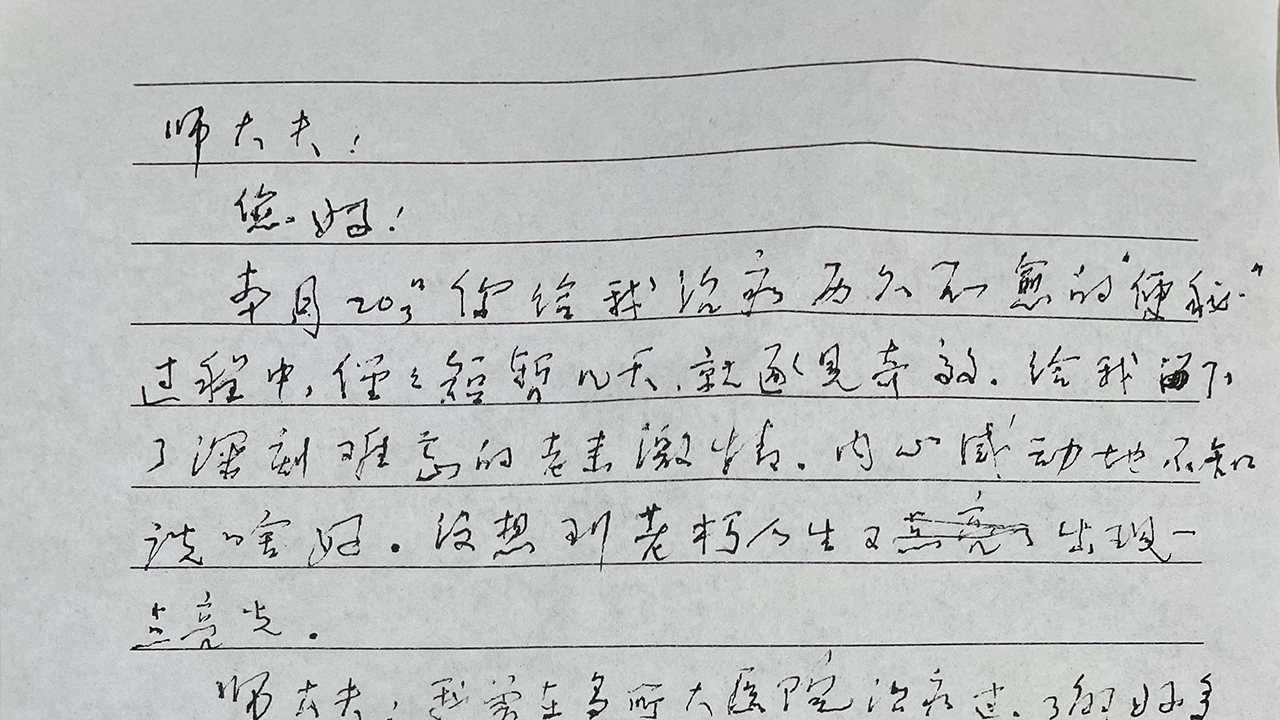 师大夫!
您好!
本月20号你给我治疗历久不愈的"便秘"
过程中,仅仅短暂几天,就逐见奇效。给我留下
了深刻难忘的老来激情。内心感动地不知
说啥好。没想到老朽人生又点亮了出现一
点亮光。
师大夫:我曾在多所大医院治疗过。了的好多